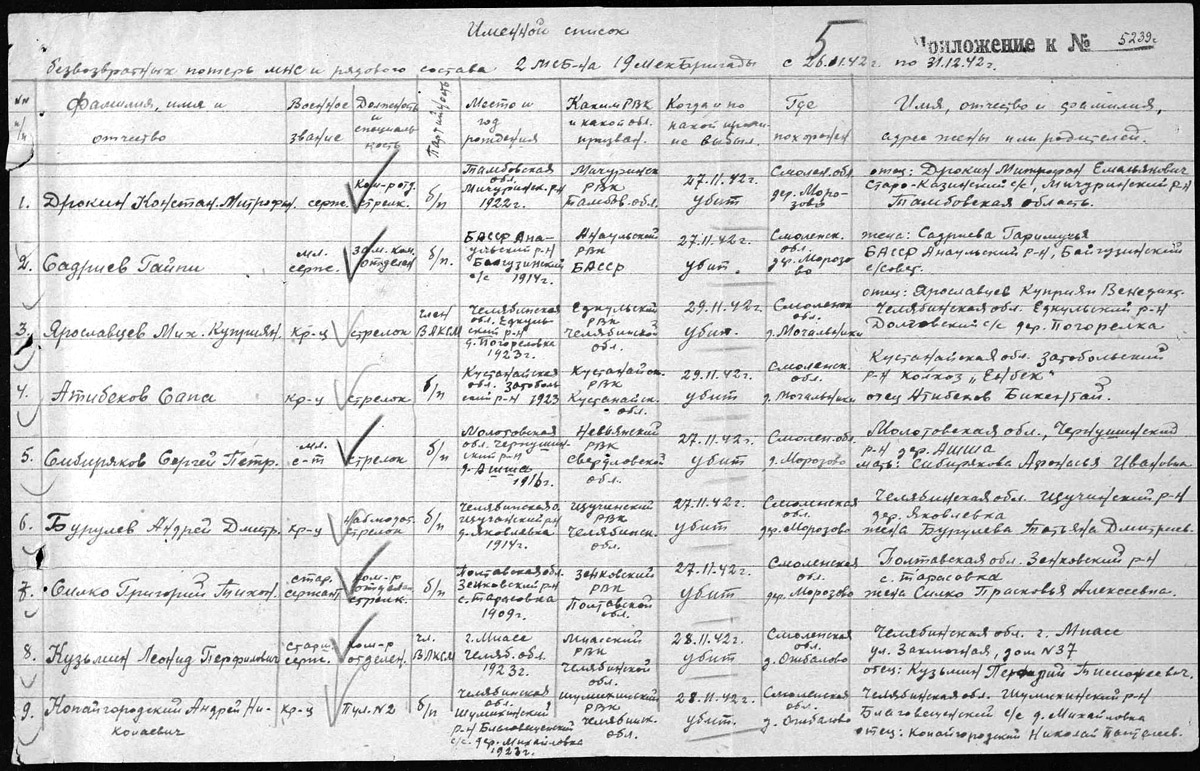 Именной список
5
Приложение к № 5239с
безвозвратных потерь мнс и рядового состава 2 МСБ-на 19 мехбригады с 26.11.42г. по 31.12.42г.
№№ п/п
Фамилия, имя и отчество
Военное звание
Должность и специальность
Партийность
Место и год рождения
Каким РВК и какой обл. призван.
Когда и по какой причине выбыл.
Где похоронен
Имя, отчество и фамилия, адрес жены или родителей.
1. Дрокин Констан. Митроф. серж. ком-р отд. стрелк. б/п
Тамбовская обл. Мичуринск. р-н 1922г.
Мичуринск РВК Тамбов. обл.
27.11.42г. убит
Смолен. обл дер. Морозово
отец: Дрокин Митрофан Емельянович
Старо-Казинский с/с, Мичуринский р-н
Тамбовская область.
2. Садриев Гайпи мл. серж. зам. ком. отделен б/п.
БАССР Анаульский р-н Байгузинский с/с 1914г.
Анаульской РВК БАССР
27.11.42г. убит.
Смоленск. обл. дер. Морозово
жена: Садриева
БАССР Анаульский р-н, Байгузинский
с/совет.
3. Ярославцев Мих. Куприян. кр-ц стрелок член ВЛКСМ
Челябинская обл. Еткульский р-н д. Погореловка 1923г.
Еткульский РВК Челябинской обл.
29.11.42г. убит.
Смоленск д. Мочальники
отец: Ярославцев Куприян Венедикт.
Челябинская обл. Еткульский р-н
Долговский с/с дер. Погорелка
4. Атибеков Сапа кр-ц стрелок б/п
Кустанайская обл. Затоболь ский р-н 1923
Кустанайск. РВК Кустанайск. обл.
29.11.42г. убит
Смоленск. обл. д. Мочальники
Кустанайская обл. Затобольский
р-н колхоз „Енбек"
отец Атибеков Бикентай.
5. Сибиряков Сергей Петр. мл. с-т стрелок б/п
Молотовская обл. Чернушинский р-н д. Ашша 1916г.
Невьянский РВК Свердловской обл.
27.11.42г. убит
Смолен. обл. д. Морозово
Молотовская обл., Чернушинский
р-н дер. Ашша
мать: Сибирякова Афонасья Ивановна
6. Бурулев Андрей Дмитр. кр-ц наблюдат. стрелок б/п
Челябинская о. Щучанский р-н д. Яковлевка 1914г.
Щучинский РВК Челябинск. обл.
27.11.42г. убит
Смоленская обл. дер. Морозово
Челябинская обл. Щучинский р-н
дер. Яковлевка
жена Бурулева Татьяна Дмитриев.
7. Силко Григорий Тихон. стар. сержант ком-р отделен. стрелк. б/п
Полтавская обл. Зенковский р-н с. Тарасовка 1909г.
Зенковский РВК Полтавской обл.
27.11.42г. убит
Смоленская обл. дер. Морозово
Полтавская обл. Зенковский р-н
с. Тарасовка
жена Силко Прасковья Алексеевна.
8. Кузьмин Леонид Перфилович старш. серж. ком-р отделен. чл. ВЛКСМ
г. Миасс Челяб. обл. 1923г.
Миасский РВК Челябинской обл.
28.11.42г. убит
Смоленская обл. д. Отбалово
Челябинская обл. г. Миасс
ул. Заключная, дом N37
отец: Кузьмин Перфирий Тимофеевич.
9. Копайгородский Андрей Николаевич кр-ц Пул. №2 б/п
Челябинская обл. Шумихинский р-н Благовещенский с/с дер. Михайловка 1923г.
Шумихинский РВК Челябинск. обл.
28.11.42г. убит.
Смоленская обл. д. Отбалово
Челябинская обл. Шумихинский р-н
Благовещенский с/с д. Михайловка
отец: Копайгородский Николай Пантелеев.